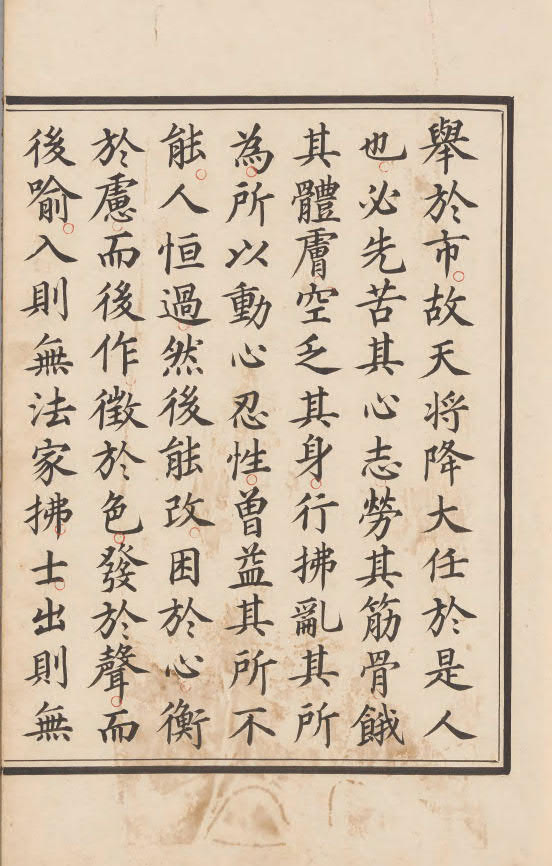 舉於市故天將降大任於是人
也必先苦其心志勞其筋骨餓
其體膚空乏其身行拂亂其所
為所以動心忍性曾益其所不
能人恒過然後能改困於心衡
於慮而後作徵於色發於聲而
後喻入則無法家拂士出則無